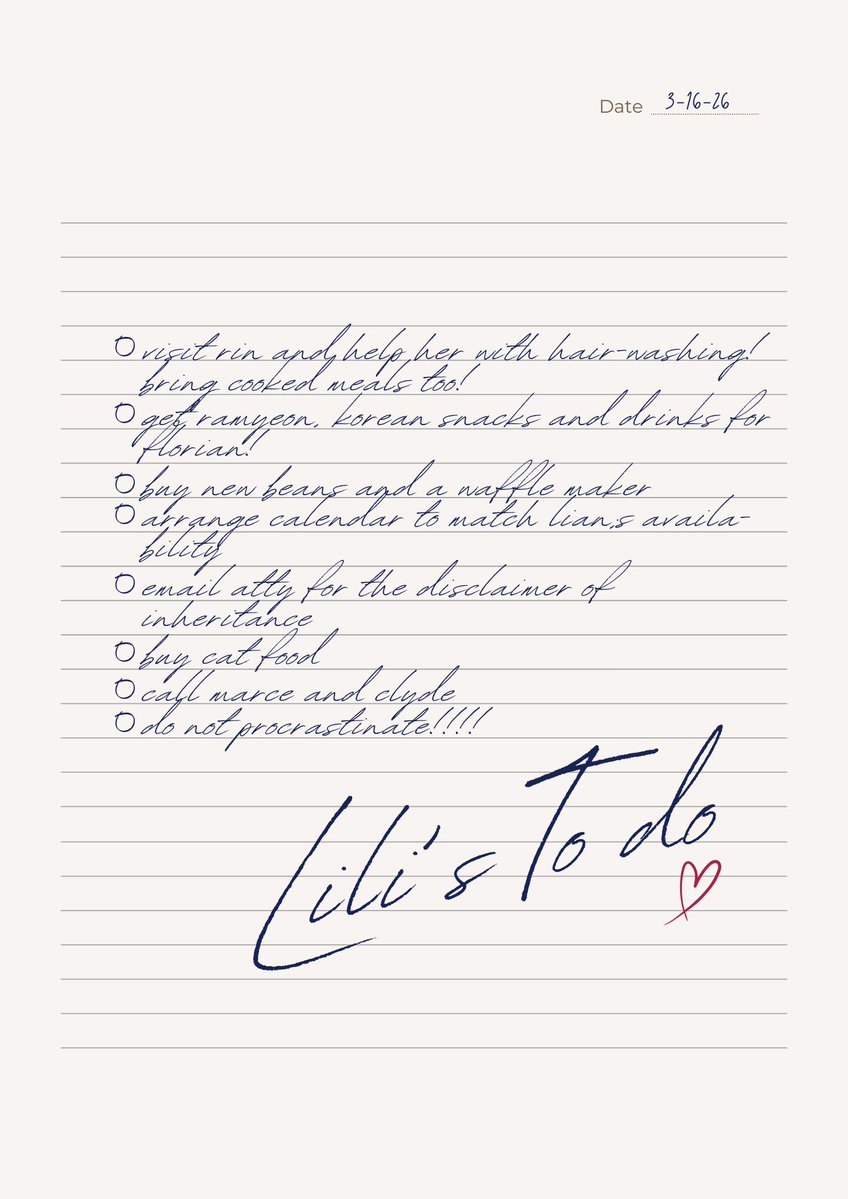 Date 3-16-26
visit rin and help her with hair-washing!
bring cooked meals too!
get ramyeon, korean snacks and drinks for
florian!
buy new beans and a waffle maker
arrange calendar to match lian,s availa-
bility
email atty for the disclaimer of
inheritance
buy cat food
call marce and clyde
do not procrastinate!!!!
Lili's To do